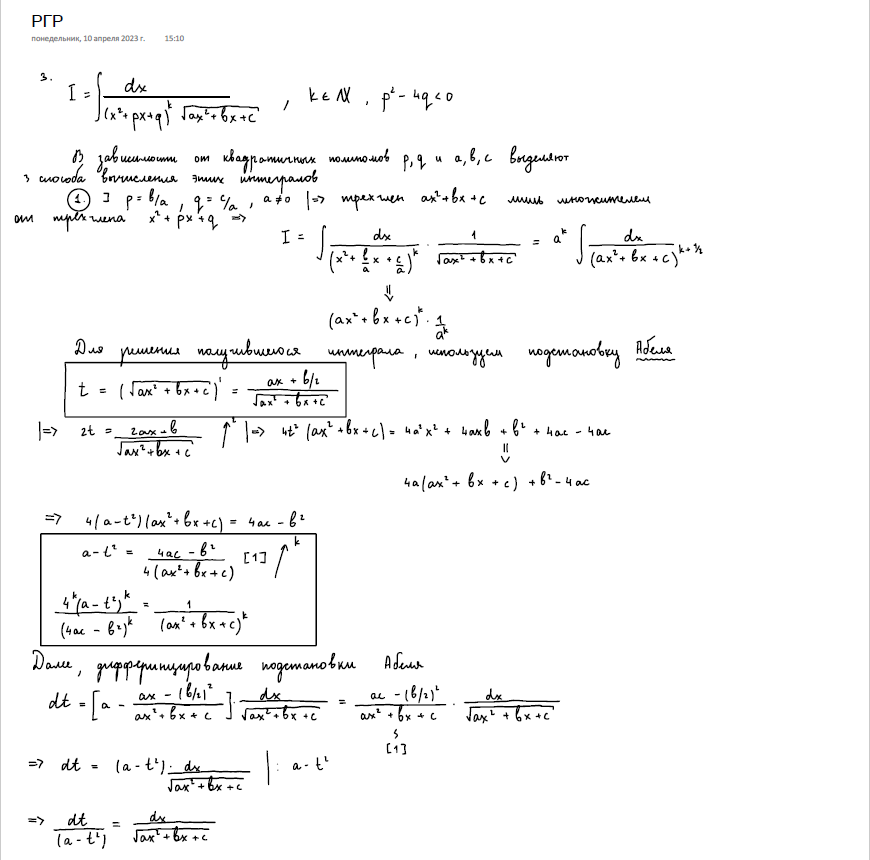 РГР
понедельник, 10 апреля 2023 г. 15:10
3. I = ∫ dx / ((x² + px + q)^k √(ax² + bx + c)) , k ∈ N , p² - 4q < 0
В зависимости от квадратичных полиномов p, q и a, b, c выделяют
3 способа вычисления этих интегралов
1. ] p = b/a , q = c/a , a ≠ 0 |=> трехчлен ax² + bx + c лишь множителем
от трехчлена x² + px + q =>
I = ∫ dx / (x² + b/a x + c/a)^k · 1 / √(ax² + bx + c) = a^k ∫ dx / (ax² + bx + c)^(k + 1/2)
⇓
(ax² + bx + c)^k · 1/a^k
Для решения получившегося интеграла, используем подстановку Абеля
t = (√(ax² + bx + c))' = (ax + b/2) / √(ax² + bx + c)
|=> 2t = (2ax + b) / √(ax² + bx + c) ↑² |=> 4t² (ax² + bx + c) = 4a²x² + 4axb + b² + 4ac - 4ac
⇓
4a(ax² + bx + c) + b² - 4ac
=> 4(a - t²)(ax² + bx + c) = 4ac - b²
a - t² = (4ac - b²) / (4(ax² + bx + c)) [1] ↑^k
4^k (a - t²)^k / (4ac - b²)^k = 1 / (ax² + bx + c)^k
Далее, дифференцирование подстановки Абеля
dt = [a - (ax - (b/2)² / (ax² + bx + c)] · dx / √(ax² + bx + c) = (ac - (b/2)²) / (ax² + bx + c) · dx / √(ax² + bx + c)
[1]
=> dt = (a - t²) · dx / √(ax² + bx + c) | : a - t²
=> dt / (a - t²) = dx / √(ax² + bx + c)